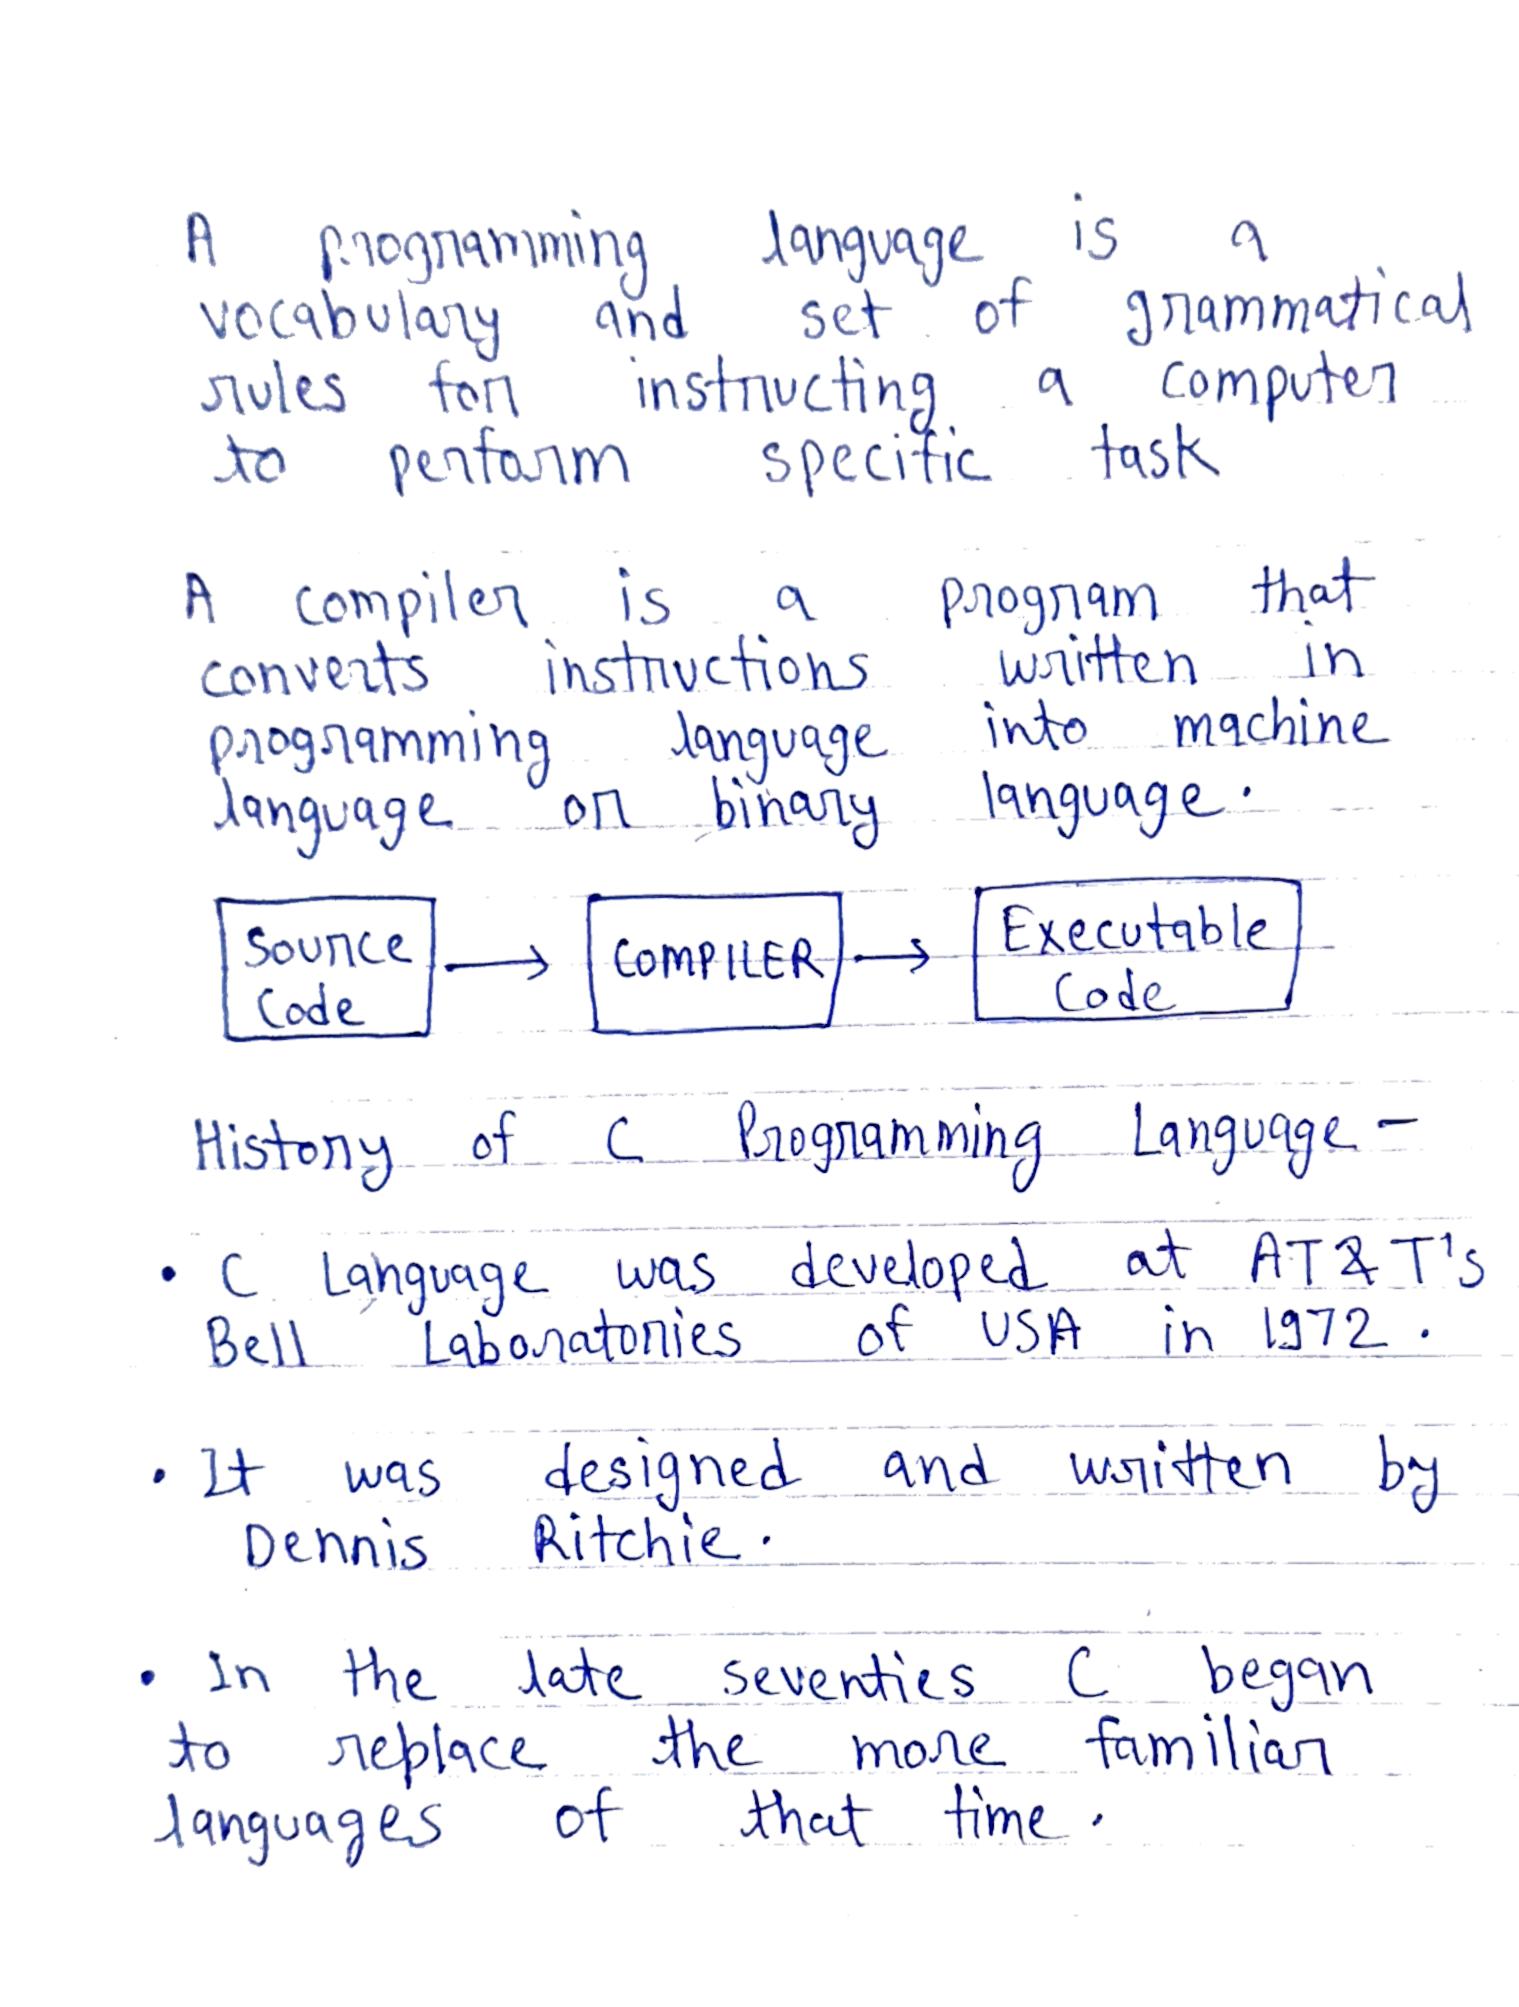 A programming language is a
vocabulary and set of grammatical
rules for instructing a computer
to perform specific task
A compiler is a program that
converts instructions written in
programming language into machine
language or binary language.
Source Code → COMPILER → Executable Code
History of C Programming Language -
• C Language was developed at AT & T's
Bell Laboratories of USA in 1972.
• It was designed and written by
Dennis Ritchie.
• In the late seventies C began
to replace the more familiar
languages of that time.